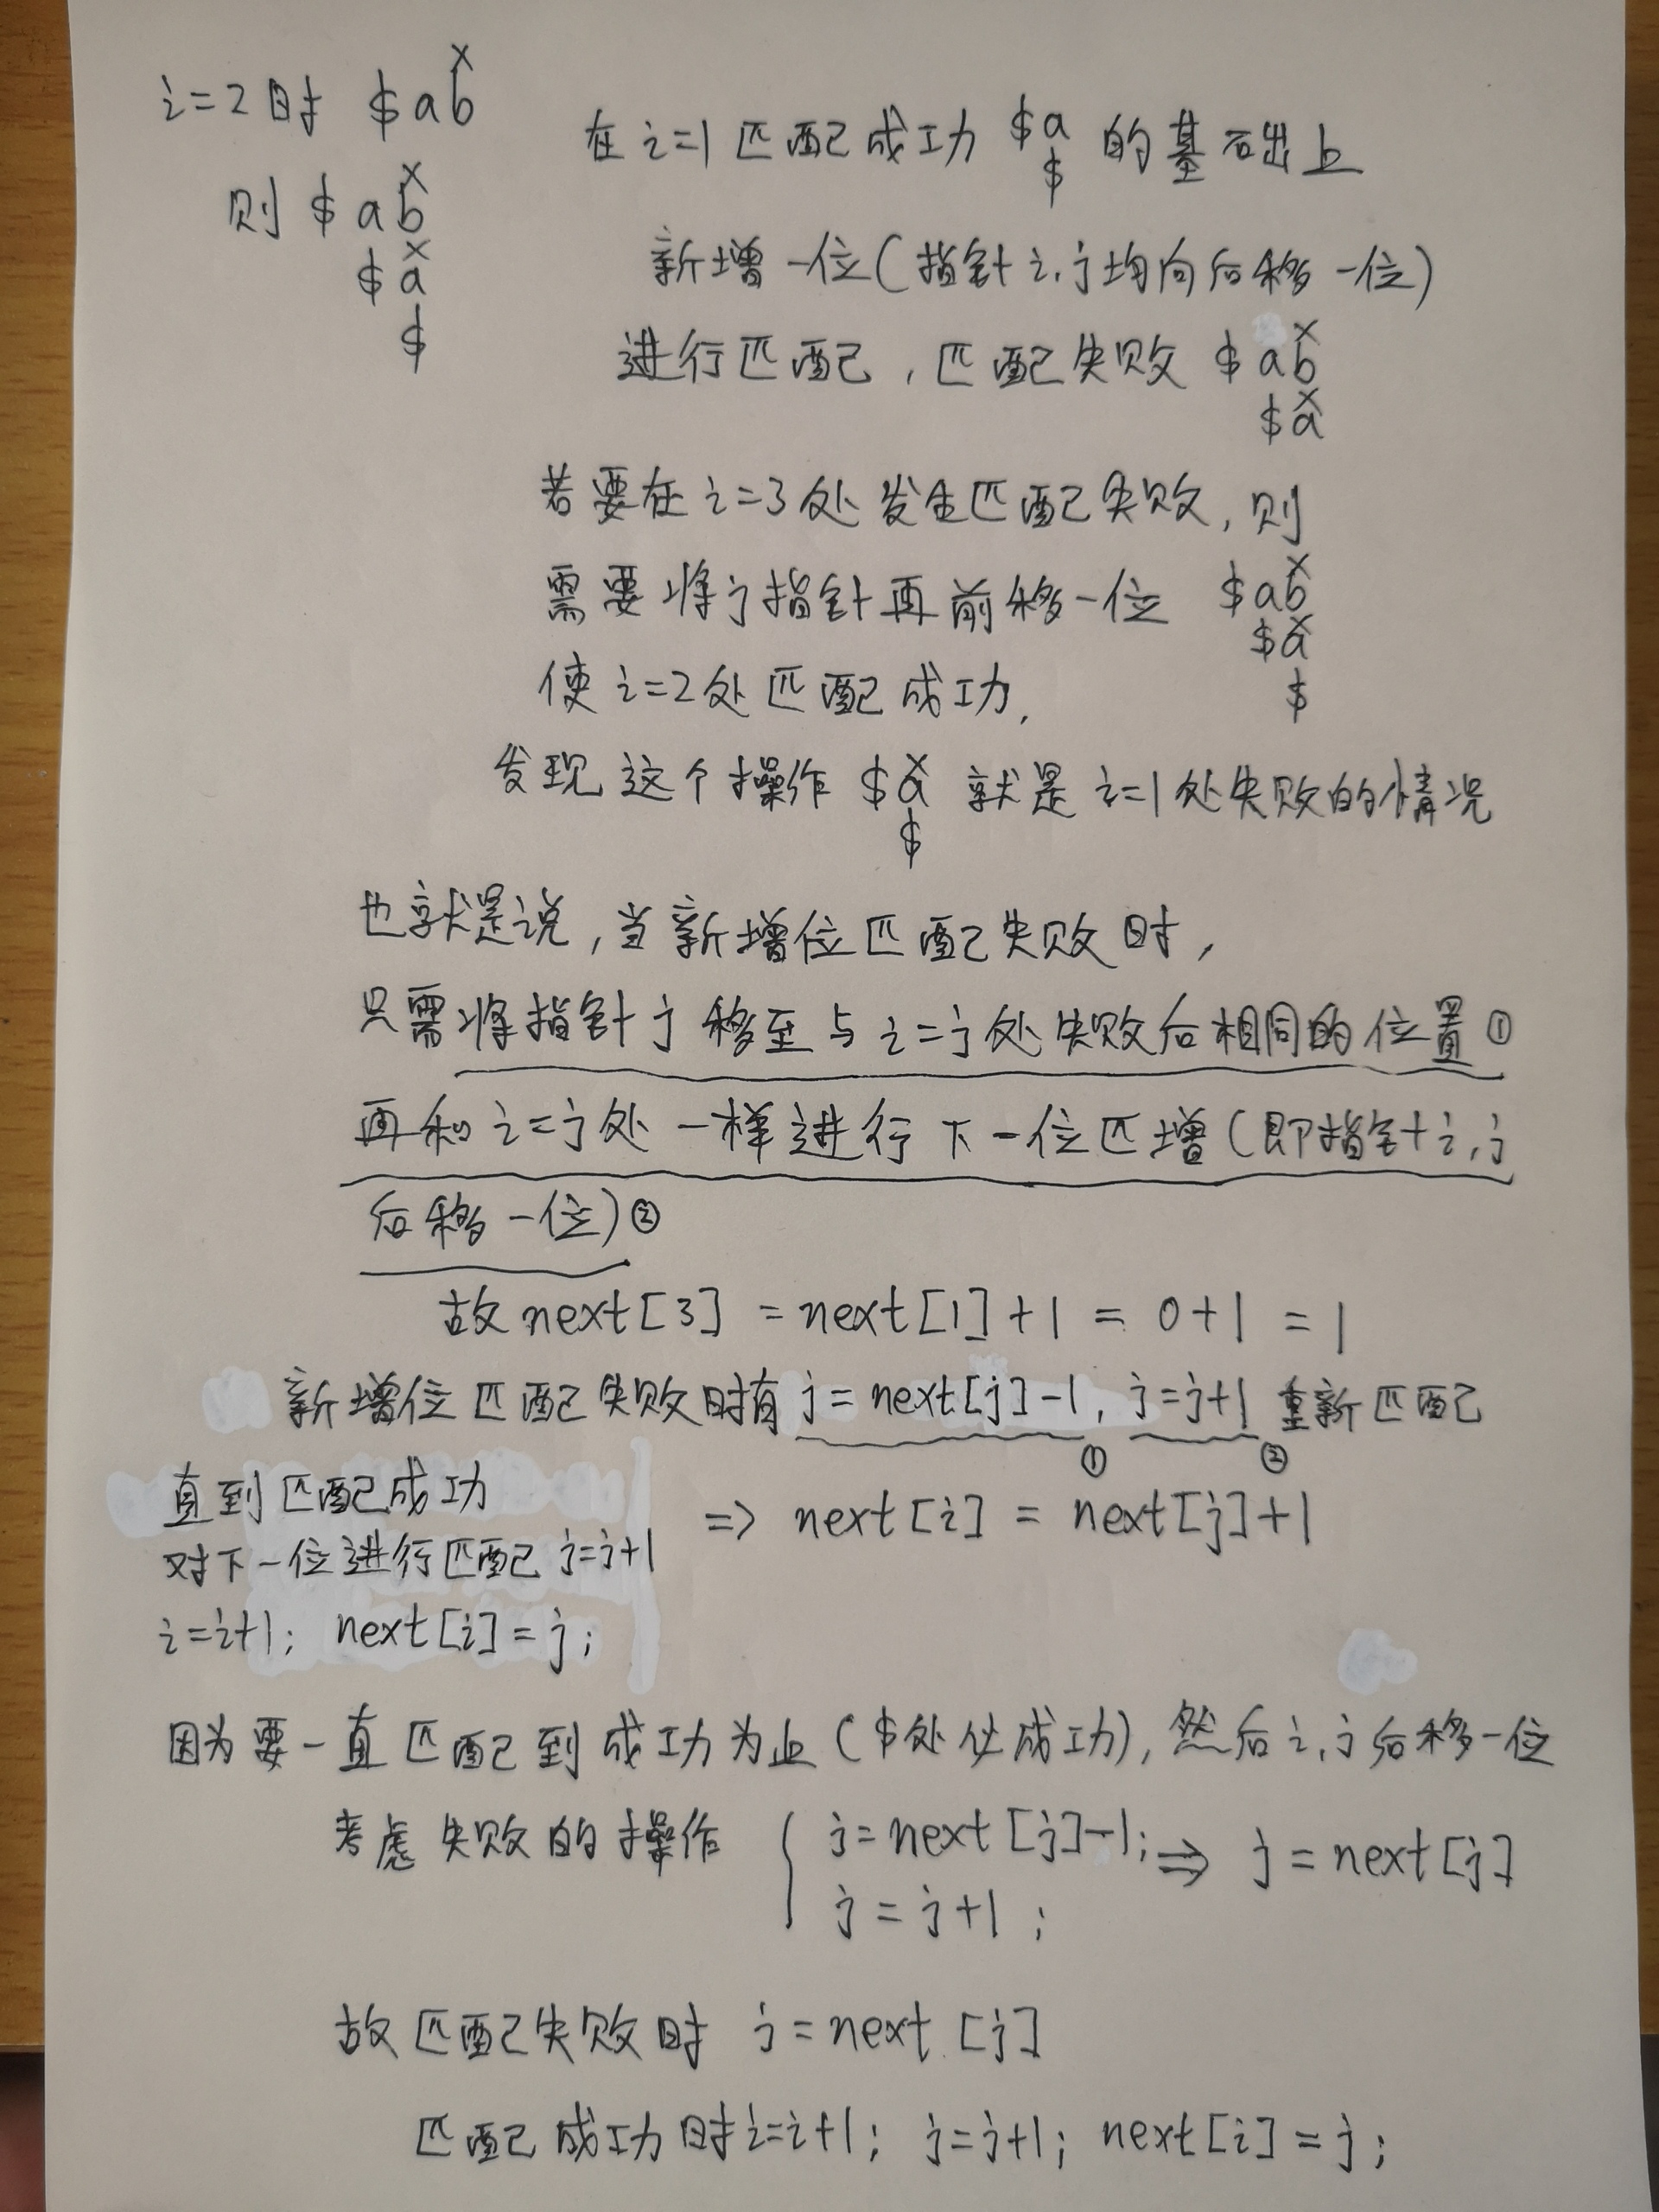 i=2时 $ab
×
则 $ab
×
$a
×
$
在i=1匹配成功 $a 的基础上
$
新增一位(指针i,j均向后移一位)
进行匹配,匹配失败 $ab
×
$a
×
若要在i=3处发生匹配失败,则
需要将j指针再前移一位 $ab
×
$a
×
使i=2处匹配成功, $
发现这个操作 $a 就是i=1处失败的情况
×
$
也就是说,当新增位匹配失败时,
只需将指针j移至与i=j处失败后相同的位置①
再和i=j处一样进行下一位匹增(即指针i,j
后移一位)②
故next[3] = next[1]+1 = 0+1 = 1
新增位匹配失败时有 j=next[j]-1, j=j+1 重新匹配
① ②
直到匹配成功
对下一位进行匹配 j=j+1
i=i+1; next[i]=j;
=> next[i] = next[j]+1
因为要一直匹配到成功为止($处必成功),然后i,j后移一位
考虑失败的操作 { j=next[j]-1; => j=next[j]
j=j+1;
故匹配失败时 j=next[j]
匹配成功时i=i+1; j=j+1; next[i]=j;